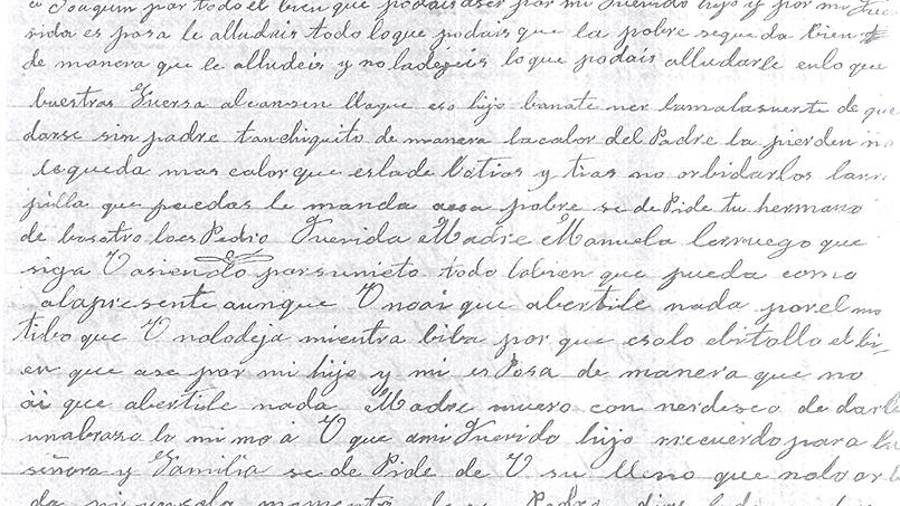 Joaquin por todo el bien que podais aser por mi Querido hijo y por mi
rida es posa le alludais todo loque podais que la pobre sequeda bien
de manera que le alludeis y no ladejeis loque podais alludarle enlo que
buestras Fuersa alcansen llaque eso hijo banate ner lamalasuerte de que
darse sin padre tanchiquito de manera lacalor del Padre la pierden
lequeda mas calor que eslade Votios y tias no orbidarlos
que puedas le manda pobre se de Pide tu hermano
de basotro loes Pedrio Querida Madre Manuela lerruego que
siga V asiendo porsunieto todo lobien que pueda como
alapresente aunque V noai que abertile nada porel mo
tibo que V nolodeja mientra biba por que esolo ebitallo el bi
en que ase por mi hijo y mi es Posa de manera que no
ai que abertile nada Madre muero con nerdeseo de darle
unabraso lo mi mo á V que ami Querido hijo recuerdo para la
señora y Familia se de Pide de V su lleno que nolo or
momento